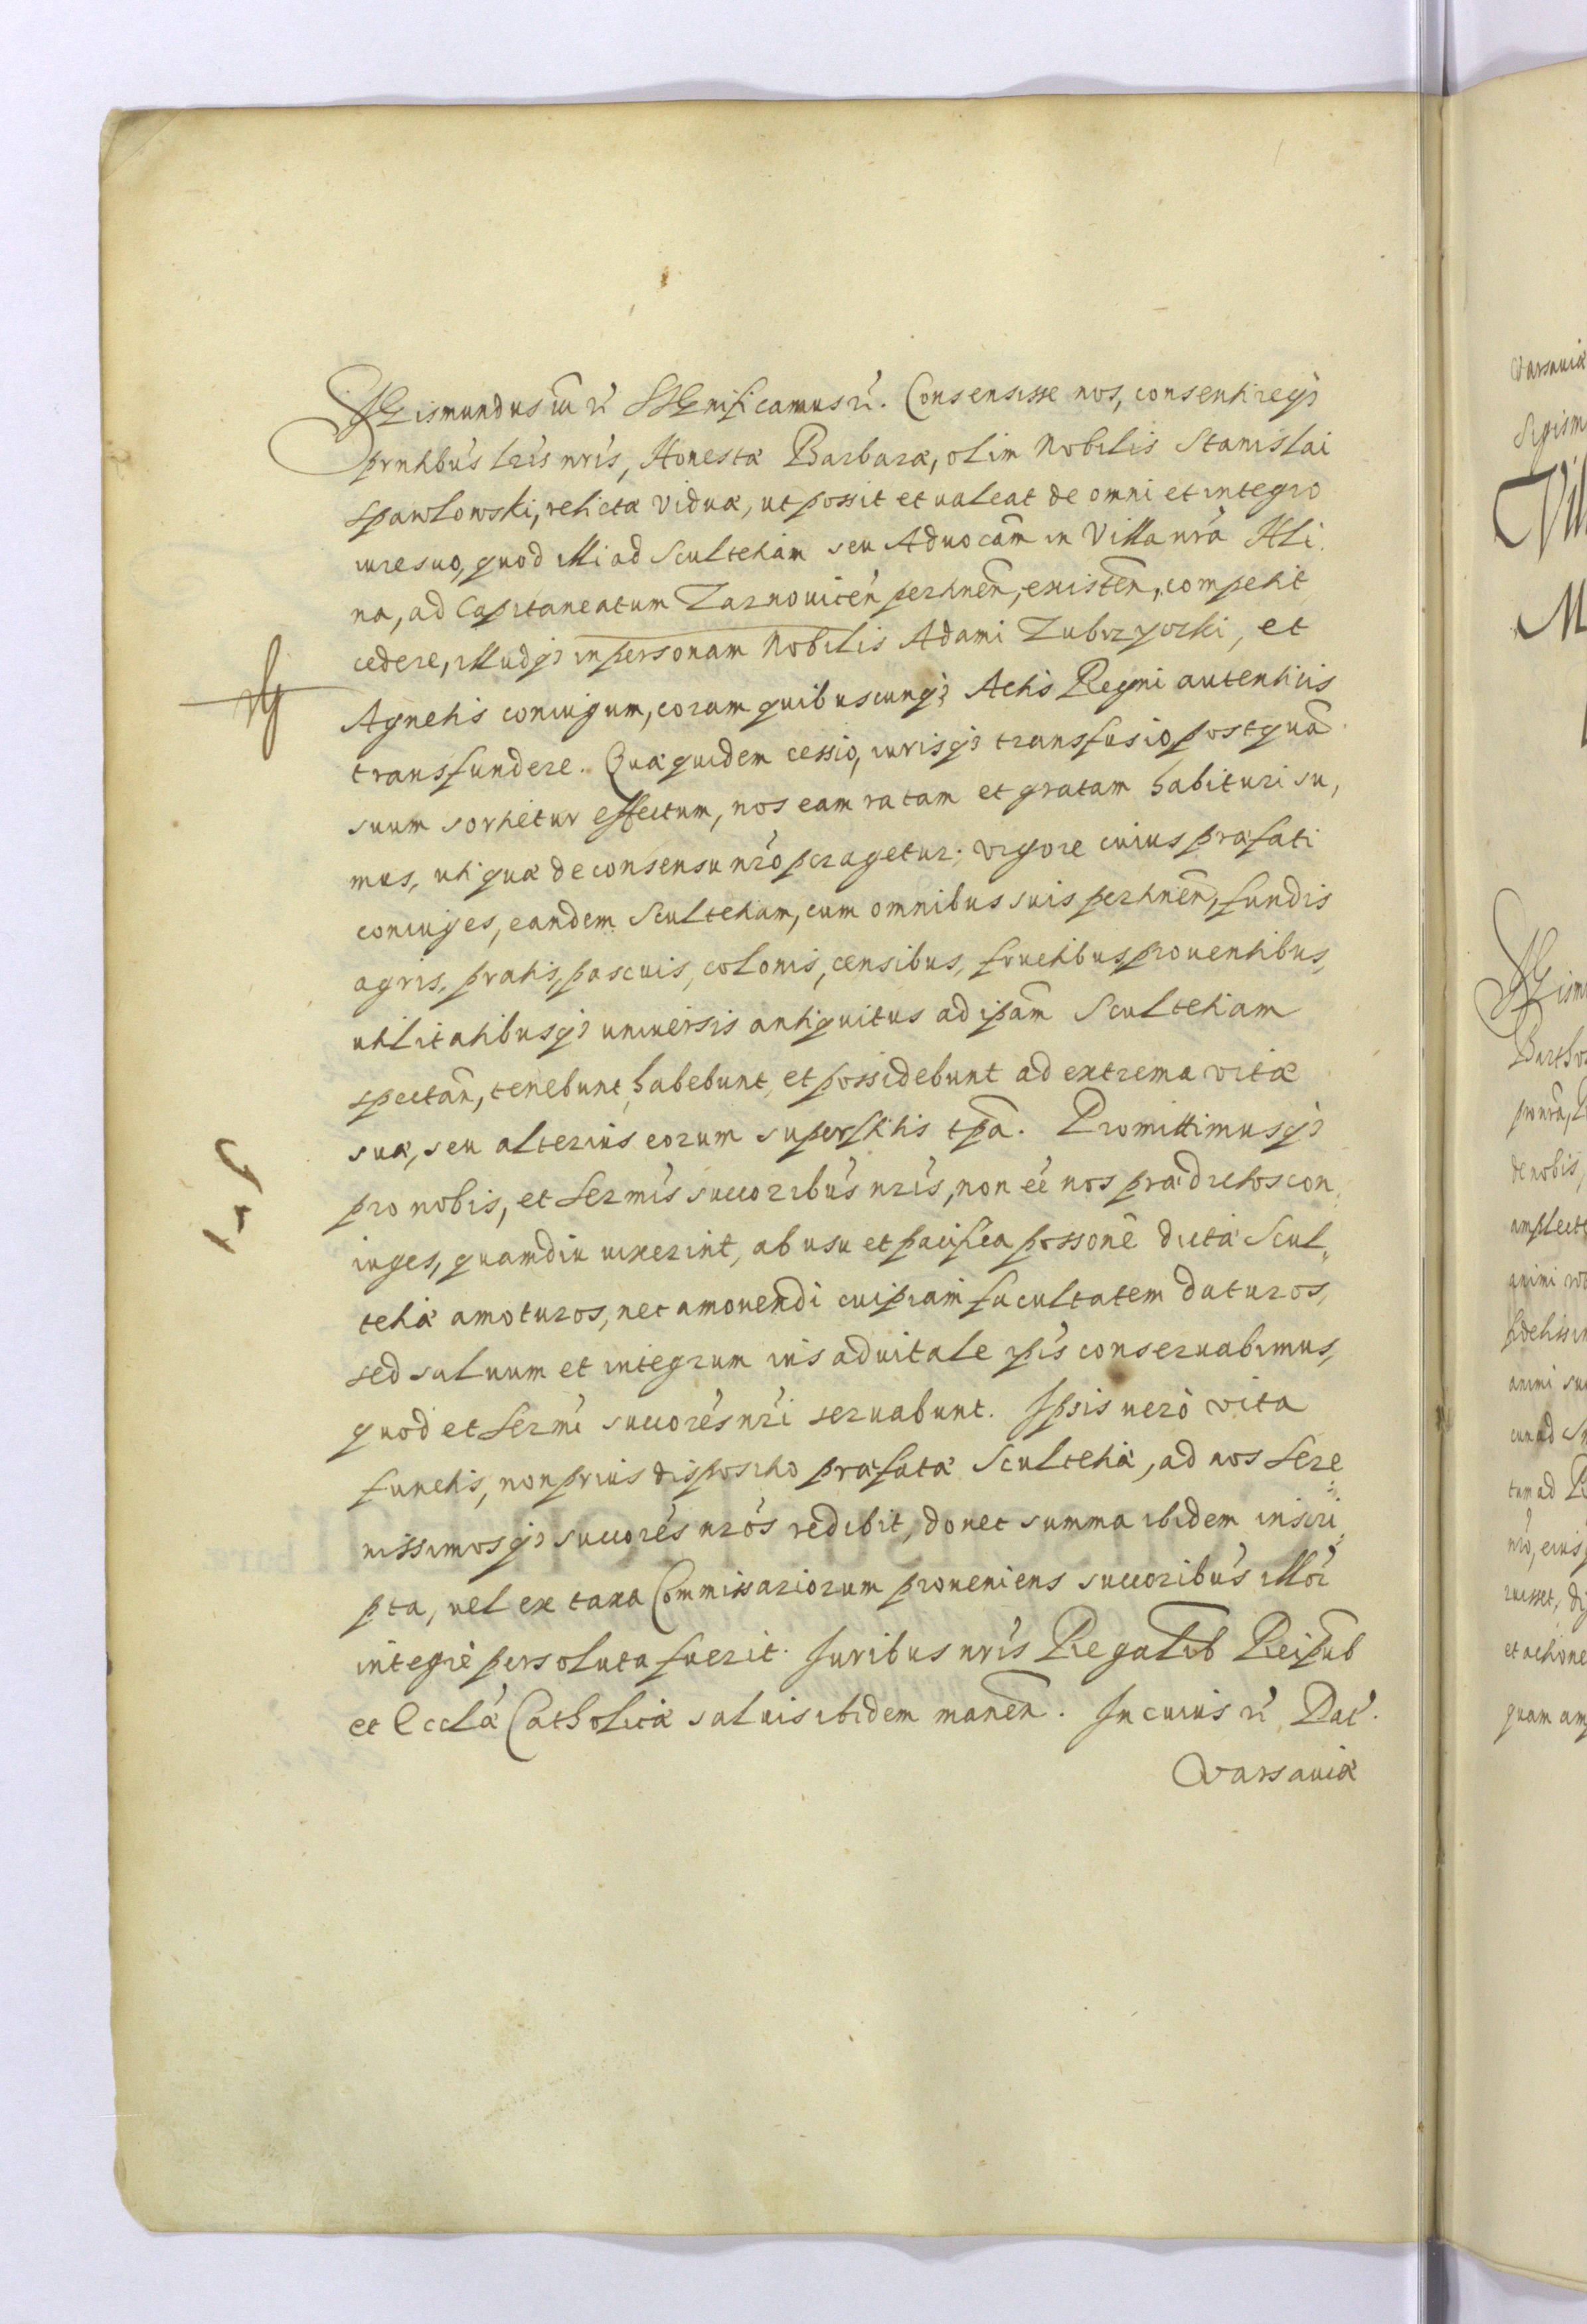 SIGismundus III etc. SIGnificamus etc. Consensisse nos, consentireq3
pñtibus lris nris, Honestæ Barbaræ, olim Nobilis Stanislai
Spawlowski, relictæ viduæ, ut possit et ualeat de omni et integro
iure suo, quod illi ad Scultetiam seu Aduocãm in Villa nrã Hli,
na, ad Capitaneatum Zarnouiceñ pertineñ, existeñ, competit
cedere, illudq3 in personam Nobilis Adami Zubrzycki, et
Agnetis coniugum, coram quibuscunq3 Actis Regni autenticis
transfundere. Quæ quidem cessio, iurisq3 transfusio, postquã
suum sortietur effectum, nos eam ratam et gratam habituri su,
mus, uti quæ de consensu nro peragetur; vigore cuius præfati
coniuges, eandem Scultetiam, cum omnibus suis pertineñ, fundis
agris, pratis, pascuis, colonis, censibus, fructibus, prouentibus,
utilitatibusq3 uniuersis antiquitus ad ipãm Scultetiam
spectañ, tenebunt, habebunt, et possidebunt ad extrema vitæ
suæ, seu alterius eorum superstitis tpã. Promittimusq3
pro nobis, et Sermis succoribus nris, non eé nos prædictos con,
iuges, quamdiu uixerint, ab usu et pacifica possone dictæ Scul,
tetiæ amoturos, nec amouendi cuipiam facultatem daturos,
sed saluum et integrum ius aduitale ipis conseruabimus,
quod et Sermi succores nri seruabunt. Ipsis uerò vita
functis, non prius dispositio præfatæ Scultetiæ, ad nos Sere
nissimosq3 succores nros redibit, donec summa ibidem inscri,
pta, uel ex taxa Commissariorum proueniens succoribus illor
integrè persoluta fuerit. Juribus nris Regalib Reipub
et Ecclæ Catholicæ saluis ibidem maneñ. In cuius etc. Dat.
Varsauiæ